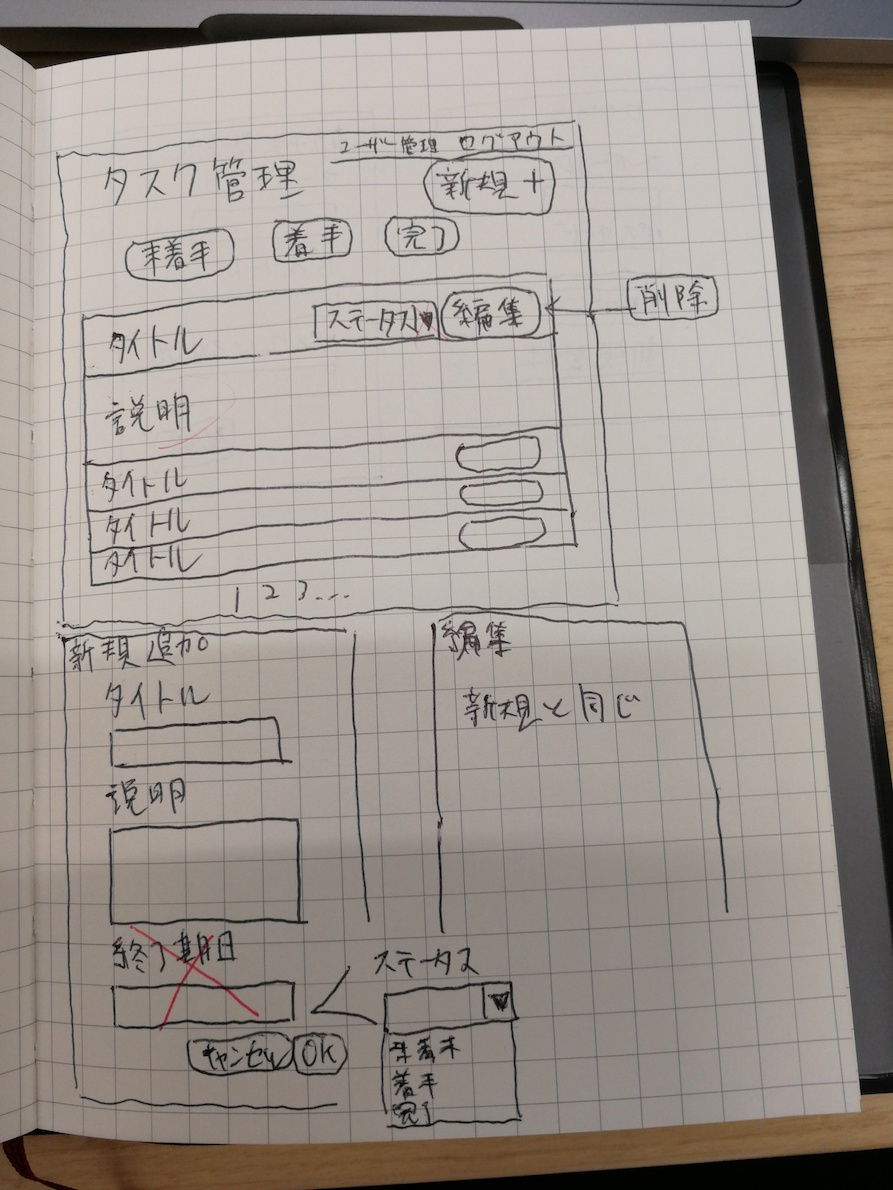 ユーザー管理 ログアウト
タスク管理 新規+
未着手 着手 完了
タイトル ステータス▼ 編集 削除
説明
タイトル
タイトル
タイトル
1 2 3...
新規追加
タイトル
説明
終了期日
キャンセル OK
ステータス
▼
未着手
着手
完了
編集
新規と同じ